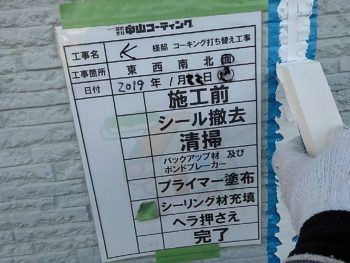 株式会社 中山コーティング
工事名 様邸 コーキング打ち替え工事
工事箇所 東 西 南 北 面
日付 2019年 1月 日
施工前
シール撤去
清掃
バックアップ材 及び
ボンドブレーカー
プライマー塗布
シーリング材充填
ヘラ押さえ
完了